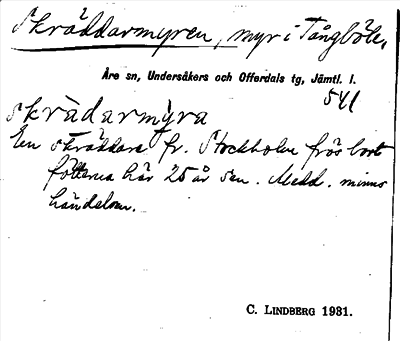 Skräddarmyren, myr i Tångböle,
Åre sn, Undersåkers och Offerdals tg, Jämtl. l.
541
skrädarmyra
En skräddare fr. Stockholm frös bort
fötterna här 25 år sen. Medd. minns
händelsen.
C. LINDBERG 1931.